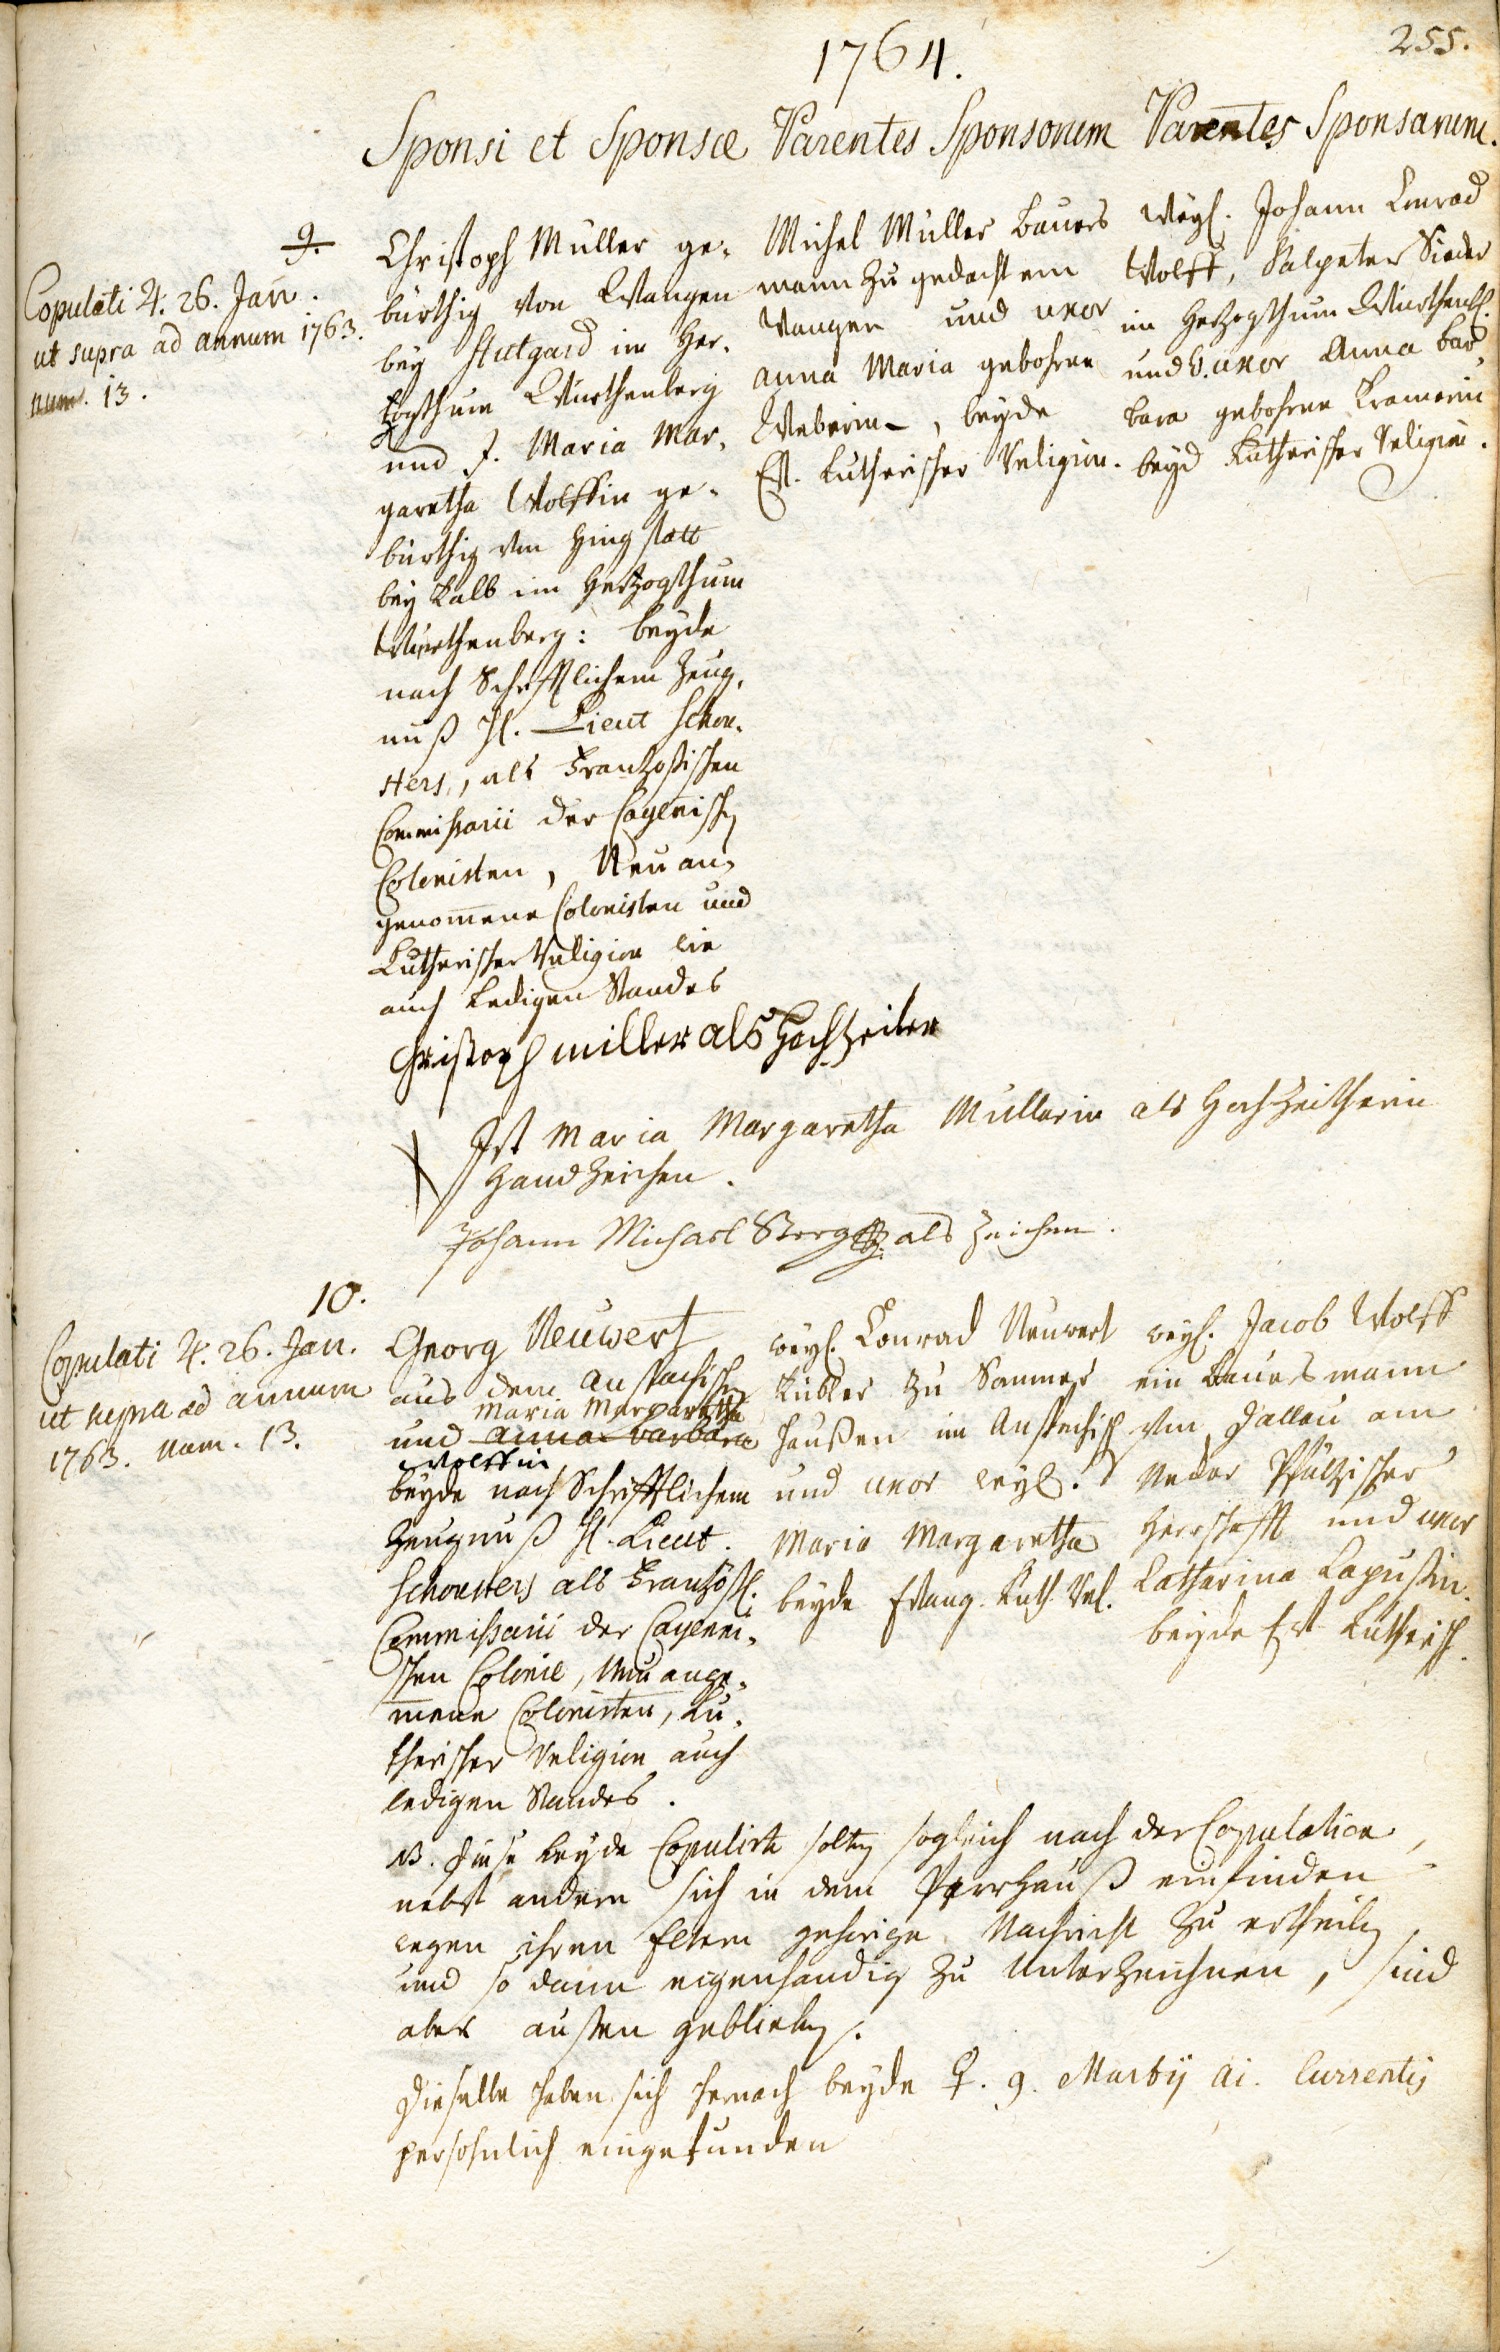 1764.
255.
Sponsi et Sponsæ
Parentes Sponsorum
Parentes Sponsarum.
9.
Copulati ♃. 26. Jan.
ut supra ad annum 1763.
num. 13.
Christoph Müller ge-
bürthig von Wangen
bey Stutgard im Her-
zogthum Würthenberg
und J. Maria Mar-
garetha Wolffin ge-
bürthig von Hingstatt
bey Kalb im Hertzogthum
Würthenberg: beyde
nach Schrifftlichem Zeug-
nuß H. Lieut Schon-
sters, als Frantzoßischen
Commissarii der Cayenisch
Colonisten, Neu an-
genom̄ene Colonisten und
Lutherischer Religion wie
auch ledigen Standes
Michel Müller Bauers
mann zu gedachtem
Wangen und uxor
Anna Maria gebohrne
Weberin, beyde
Ev. Lutherischer Religion.
Weyl. Johann Conrad
Wolff, Salpeter Sieder
im Herzogthum Würthenb.
und uxor Anna Bar-
bara gebohrne Kramerin
beyd Lutherischer Religion.
Christoph miller als Hochzeiter
Ist Maria Margaretha Müllerin als Hochzeitherin
Handzeichen.
Johann Michael als Zeichen.
10.
Copulati ♃. 26. Jan.
ut supra ad annum
1763. num. 13.
Georg Neuwert
aus dem Anspachisch
Maria Margaretha
und Anna Barbara
Wolffin
beyde nach Schrifftlichem
Zeugnuß H. Lieut.
Schonsters als Frantzöß.
Commissarii der Cayenni-
schen Colonie, Neu ange-
mene Colonisten, Lu-
therischer Religion auch
ledigen Standes.
weyl. Conrad Neuwert
Kübler zu Sommers
haußen im Anspachisch
und uxor weyl.
Maria Margaretha
beyde Evang. Luth. Rel.
weyl. Jacob Wolff
ein Bauersmann
von Dallau am
Neckar Pfältzischer
Herrschafft und uxor
Catharina Lapußin.
beyde Ev. Lutherisch.
NB. Diese beyde Copulirte solten sogleich nach der Copulation,
nebst andern sich in dem Pfarrhauß einfinden
wegen ihren Eltern gehörige Nachricht zu ertheilen,
und so dann eigenhändig zu unterzeichnen, sind
aber außen geblieben.
Dieselbe haben sich hernach beyde ♀. 9. Martij ai. Currentis
persohnlich eingefunden